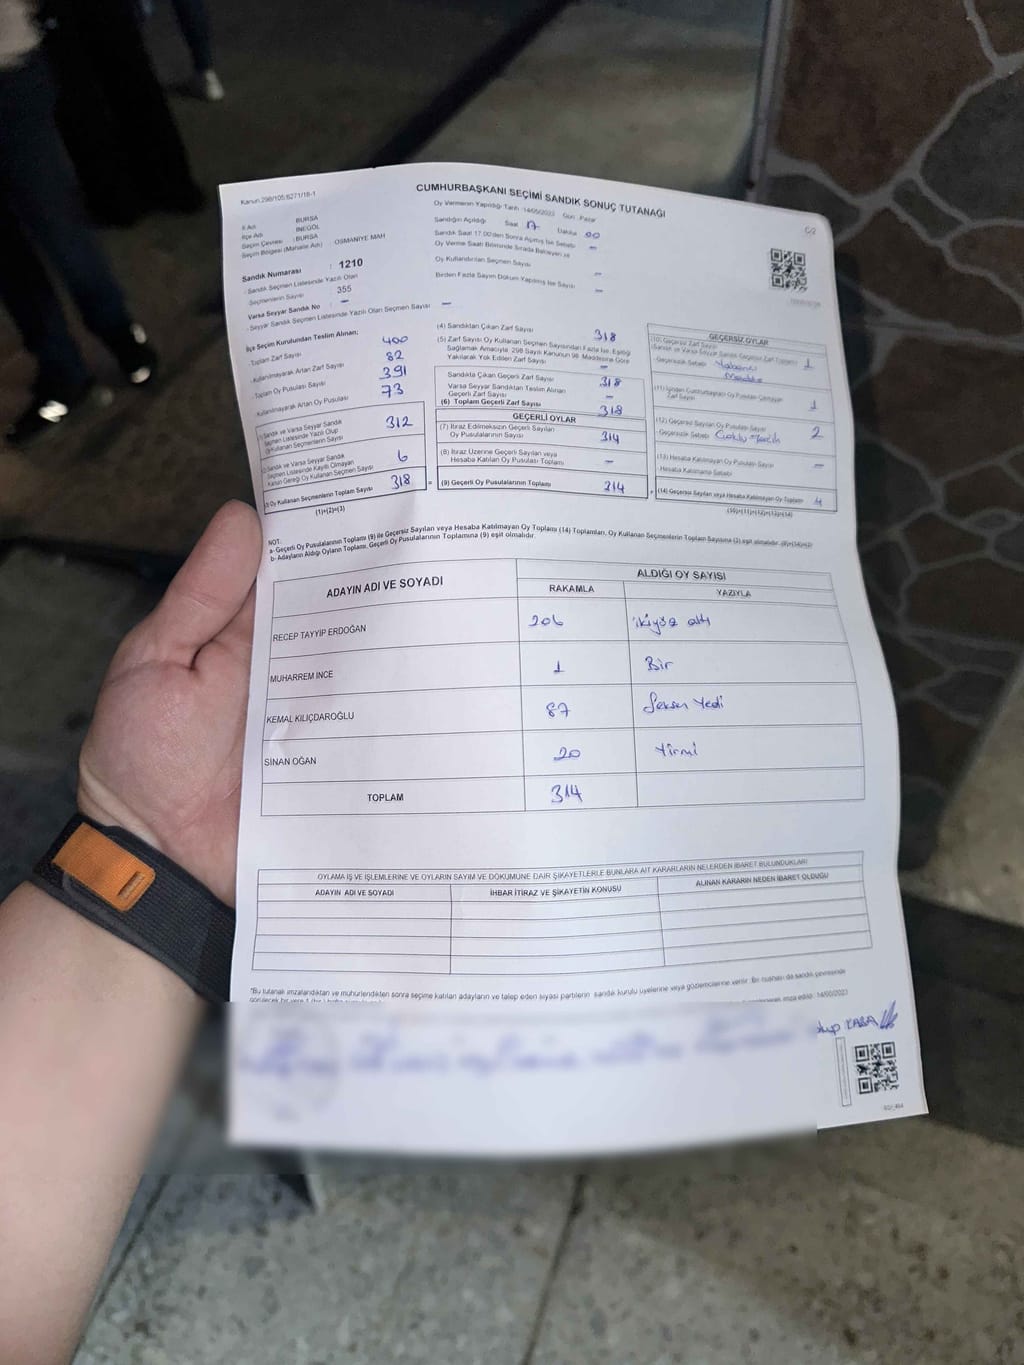 Kanun 298/105;6271/18-1
CUMHURBAŞKANI SEÇİMİ SANDIK SONUÇ TUTANAĞI
C/2
Oy Vermenin Yapıldığı Tarih :14/05/2023 Gün :Pazar
İl Adı : BURSA
İlçe Adı : İNEGÖL
Seçim Çevresi : BURSA
Seçim Bölgesi (Mahalle Adı) : OSMANİYE MAH
Sandığın Açıldığı Saat 17 Dakika 00
Sandık Saat 17.00'den Sonra Açılmış İse Sebebi –
Oy Verme Saati Bitiminde Sırada Bekleyen ve
Oy Kullandırılan Seçmen Sayısı –
Birden Fazla Sayım Döküm Yapılmış İse Sayısı –
Sandık Numarası : 1210
- Sandık Seçmen Listesinde Yazılı Olan
Seçmenlerin Sayısı : 355
Varsa Seyyar Sandık No : –
- Seyyar Sandık Seçmen Listesinde Yazılı Olan Seçmen Sayısı –
İlçe Seçim Kurulundan Teslim Alınan;
- Toplam Zarf Sayısı 400
- Kullanılmayarak Artan Zarf Sayısı 82
- Toplam Oy Pusulası Sayısı 391
- Kullanılmayarak Artan Oy Pusulası 73
Sandık ve Varsa Seyyar Sandık
Seçmen Listesinde Yazılı Olup
Oy Kullanan Seçmenlerin Sayısı 312
Sandık ve Varsa Seyyar Sandık
Seçmen Listesinde Kayıtlı Olmayan
Kanun Gereği Oy Kullanan Seçmen Sayısı 6
Oy Kullanan Seçmenlerin Toplam Sayısı 318
(1)+(2)=(3)
(4) Sandıktan Çıkan Zarf Sayısı 318
(5) Zarf Sayısı Oy Kullanan Seçmen Sayısından Fazla İse, Eşitliği
Sağlamak Amacıyla; 298 Sayılı Kanunun 98. Maddesine Göre
Yakılarak Yok Edilen Zarf Sayısı –
Sandıkta Çıkan Geçerli Zarf Sayısı 318
Varsa Seyyar Sandıktan Teslim Alınan
Geçerli Zarf Sayısı –
(6) Toplam Geçerli Zarf Sayısı 318
GEÇERLİ OYLAR
(7) İtiraz Edilmeksizin Geçerli Sayılan
Oy Pusulalarının Sayısı 314
(8) İtiraz Üzerine Geçerli Sayılan veya
Hesaba Katılan Oy Pusulası Toplamı –
(9) Geçerli Oy Pusulalarının Toplamı 314
GEÇERSİZ OYLAR
(10) Geçersiz Zarf Sayısı
(Sandık ve Varsa Seyyar Sandık Geçersiz Zarf Toplamı) 1
- Geçersizlik Sebebi : Yabancı
Madde
(11) İçinden Cumhurbaşkanı Oy Pusulası Çıkmayan
Zarf Sayısı 1
(12) Geçersiz Sayılan Oy Pusulası Sayısı 2
- Geçersizlik Sebebi : Çoklu tercih
(13) Hesaba Katılmayan Oy Pusulası Sayısı –
- Hesaba Katılmama Sebebi:
(14) Geçersiz Sayılan veya Hesaba Katılmayan Oy Toplamı 4
(10)+(11)+(12)+(13)=(14)
NOT:
a- Geçerli Oy Pusulalarının Toplamı (9) ile Geçersiz Sayılan veya Hesaba Katılmayan Oy Toplamı (14) Toplamları, Oy Kullanan Seçmenlerin Toplam Sayısına (3) eşit olmalıdır. (9)+(14)=(3)
b- Adayların Aldığı Oyların Toplamı, Geçerli Oy Pusulalarının Toplamına (9) eşit olmalıdır.
ADAYIN ADI VE SOYADI
ALDIĞI OY SAYISI
RAKAMLA YAZIYLA
RECEP TAYYİP ERDOĞAN 206 ikiyüz altı
MUHARREM İNCE 1 Bir
KEMAL KILIÇDAROĞLU 87 Seksen Yedi
SİNAN OĞAN 20 Yirmi
TOPLAM 314
OYLAMA İŞ VE İŞLEMLERİNE VE OYLARIN SAYIM VE DÖKÜMÜNE DAİR ŞİKAYETLERLE BUNLARA AİT KARARLARIN NELERDEN İBARET BULUNDUKLARI
ADAYIN ADI VE SOYADI
İHBAR İTİRAZ VE ŞİKAYETİN KONUSU
ALINAN KARARIN NEDEN İBARET OLDUĞU
"Bu tutanak imzalandıktan ve mühürlendikten sonra seçime katılan adayların ve talep eden siyasi partilerin sandık kurulu üyelerine veya gözlemcilerine verilir. Bir nüshası da sandık çevresinde
imza edildi. 14/05/2023
KARA